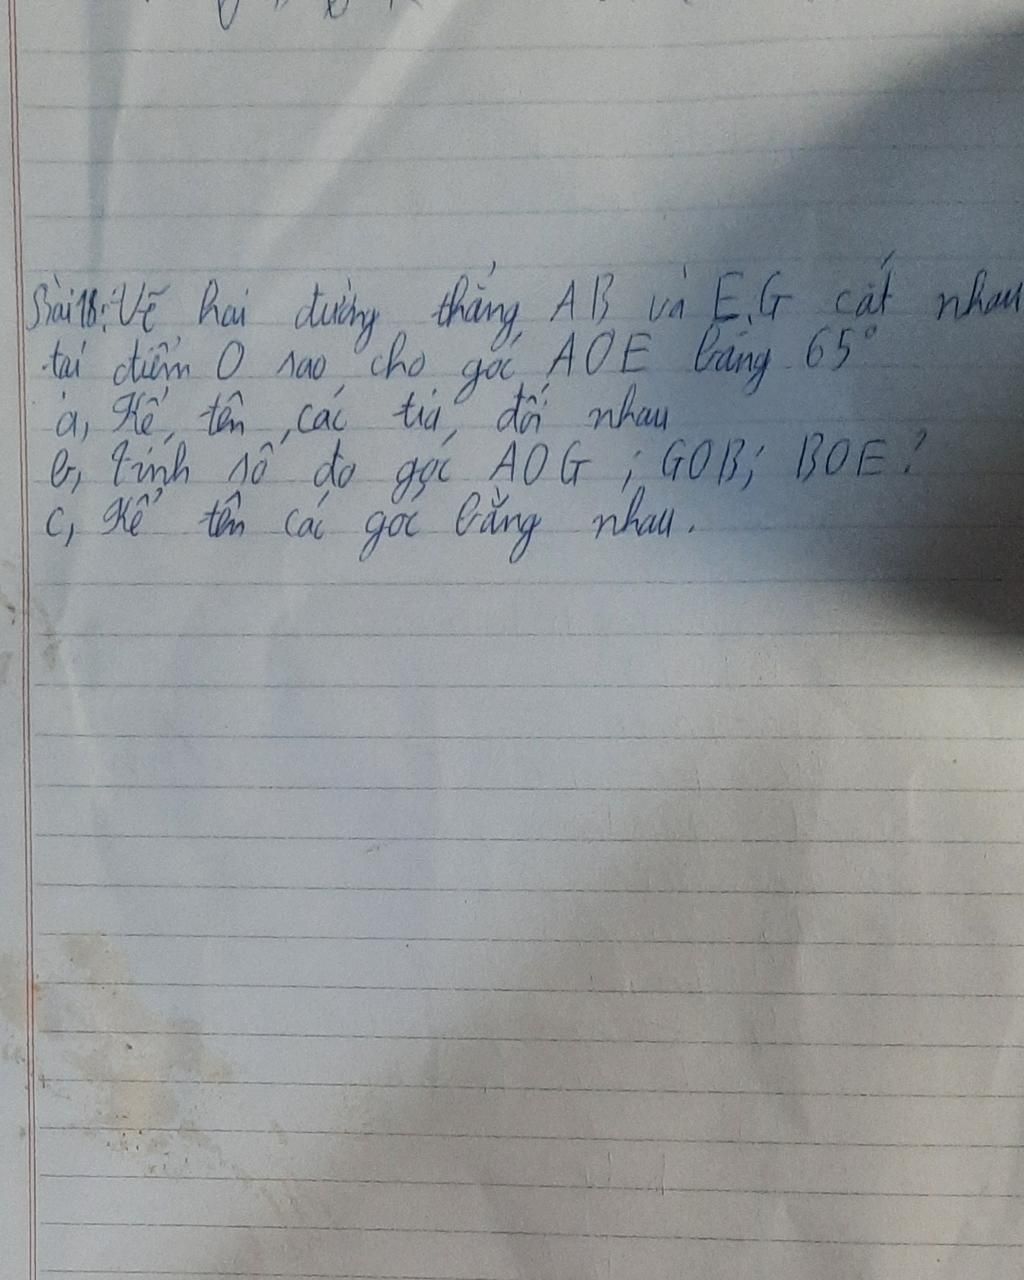 Bài 18: Vẽ hai đường thẳng AB và EG cắt nhau
tại điểm O sao cho góc AOE bằng 65°
a, Kể tên các tia đối nhau
b, Tính số đo góc AOG ; GOB; BOE ?
c, Kể tên các góc bằng nhau.